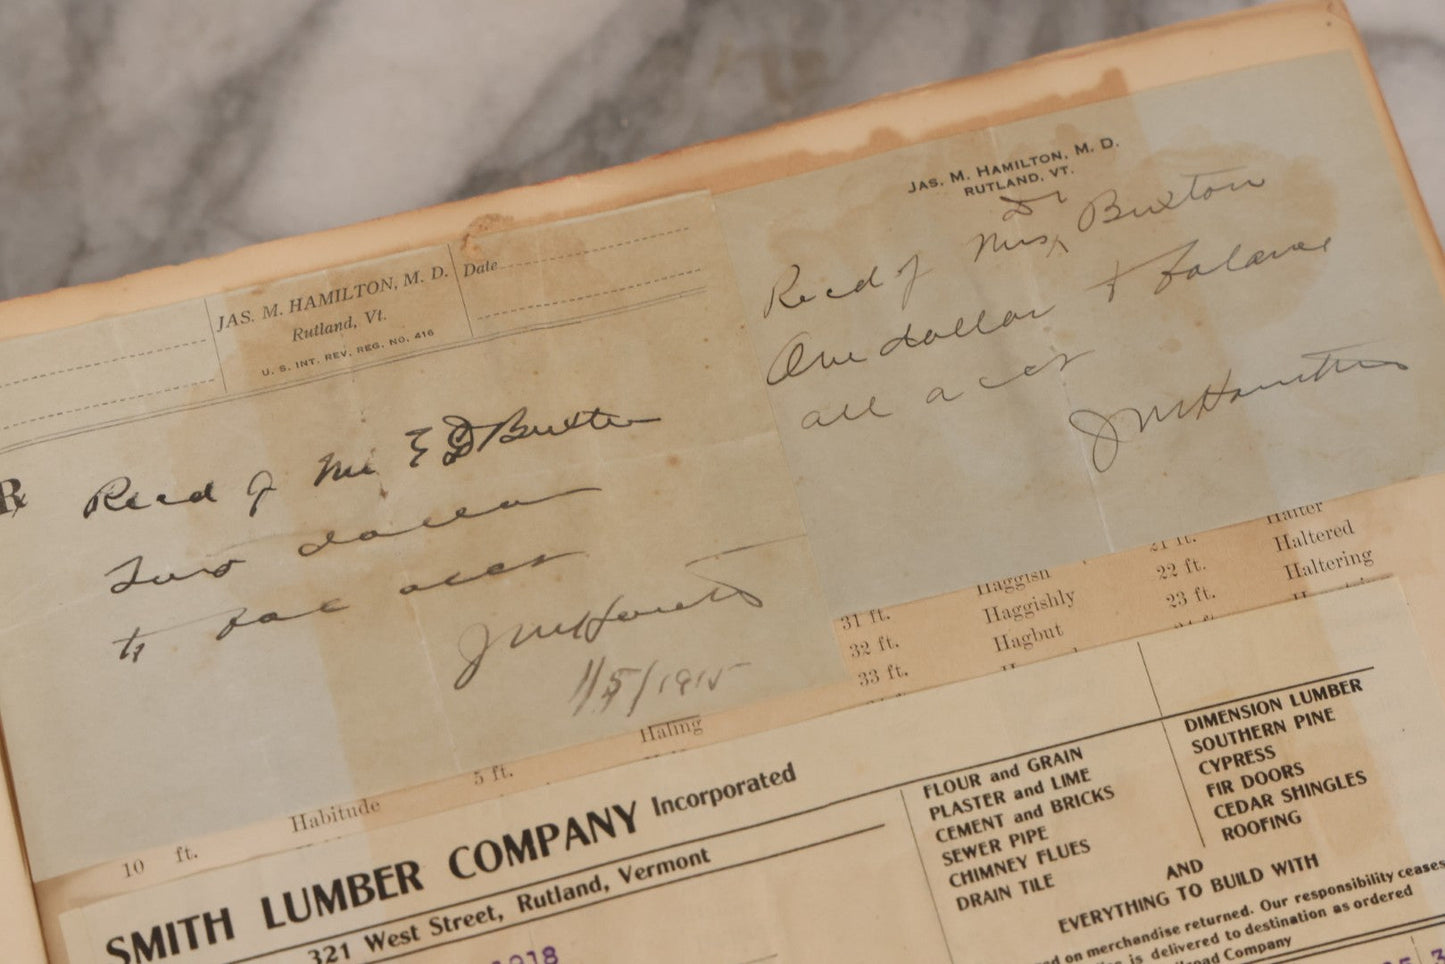 JAS. M. HAMILTON, M. D.
Rutland, Vt.
U. S. INT. REV. REG. NO. 416
Date
℞
Recd of Mr E D Buxton
Two dollars
to bal acct
J M Hamilton
1/5/1915
JAS. M. HAMILTON, M. D.
RUTLAND, VT.
Dr
Recd of Mrs Buxton
One dollar + balance
all acct
J M Hamilton
Haggish
Haggishly
Hagbut
31 ft.
32 ft.
33 ft.
21 ft.
22 ft.
23 ft.
Halter
Haltered
Haltering
Haling
5 ft.
Habitude
10 ft.
SMITH LUMBER COMPANY Incorporated
321 West Street, Rutland, Vermont
1918
FLOUR and GRAIN
PLASTER and LIME
CEMENT and BRICKS
SEWER PIPE
CHIMNEY FLUES
DRAIN TILE
DIMENSION LUMBER
SOUTHERN PINE
CYPRESS
FIR DOORS
CEDAR SHINGLES
ROOFING
AND
EVERYTHING TO BUILD WITH
on merchandise returned. Our responsibility ceases
is delivered to destination as ordered
Company